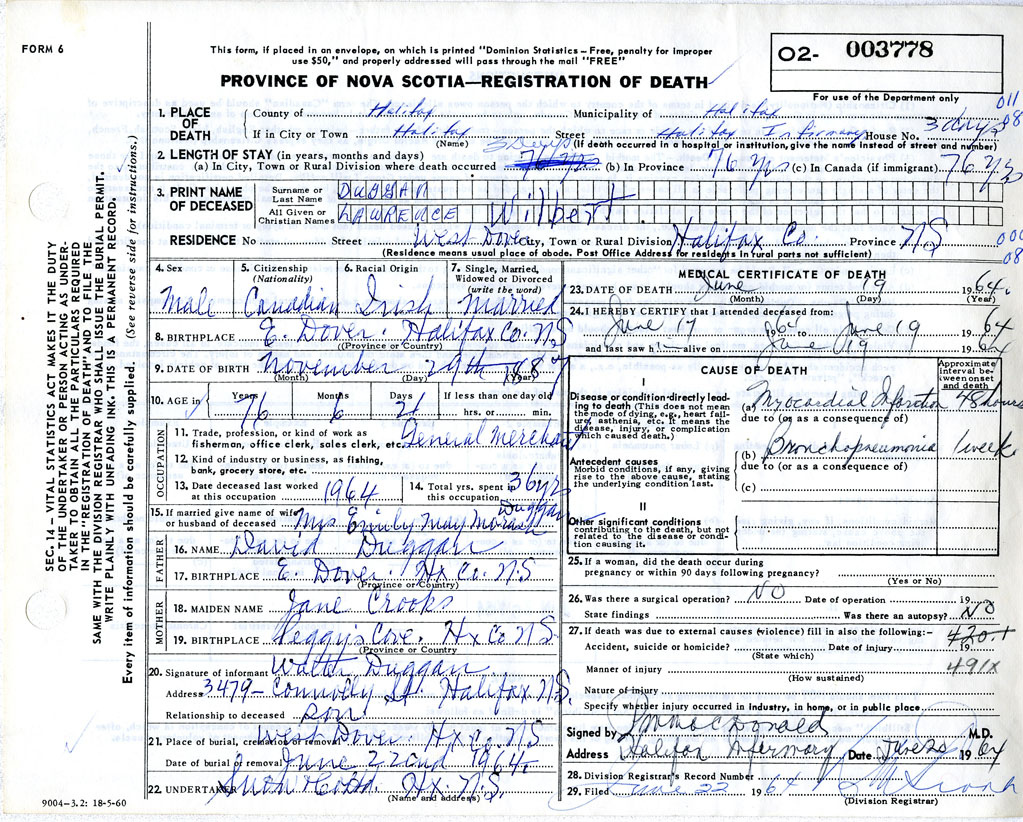 FORM 6
This form, if placed in an envelope, on which is printed "Dominion Statistics – Free, penalty for improper
use $50," and properly addressed will pass through the mail "FREE"
PROVINCE OF NOVA SCOTIA—REGISTRATION OF DEATH
O2- 003778
For use of the Department only
011
08
1. PLACE OF DEATH County of Halifax Municipality of Halifax
If in City or Town Halifax Street Halifax Infirmary House No. 3 days
(Name) (If death occurred in a hospital or institution, give the name instead of street and number)
2. LENGTH OF STAY (in years, months and days)
(a) In City, Town or Rural Division where death occurred 3 Days 76 yrs (b) In Province 76 yrs (c) In Canada (if immigrant) 76 yrs
3. PRINT NAME OF DECEASED Surname or Last Name DUGGAN
All Given or Christian Names LAWRENCE Wilbert
RESIDENCE No Street West Dover City, Town or Rural Division Halifax Co. Province N.S.
(Residence means usual place of abode. Post Office Address for residents in rural parts not sufficient)
08
4. Sex Male
5. Citizenship (Nationality) Canadian
6. Racial Origin Irish
7. Single, Married, Widowed or Divorced (write the word) Married
8. BIRTHPLACE E. Dover. Halifax Co. N.S.
(Province or Country)
9. DATE OF BIRTH November 29th
(Month) (Day) (Year)
10. AGE in Years 76 Months 6 Days 21 If less than one day old
hrs. or min.
OCCUPATION
11. Trade, profession, or kind of work as
fishermen, office clerk, sales clerk, etc. General Merchant
12. Kind of industry or business, as fishing,
bank, grocery store, etc.
13. Date deceased last worked at this occupation 1964
14. Total yrs. spent in this occupation 36 yrs
15. If married give name of wife or husband of deceased Mrs Emily May Morash Duggan
FATHER
16. NAME David Duggan
17. BIRTHPLACE E. Dover. Hx Co. N.S.
(Province or Country)
MOTHER
18. MAIDEN NAME Jane Crooks
19. BIRTHPLACE Peggy's Cove. Hx Co N.S.
(Province or Country)
20. Signature of informant Walter Duggan
Address 3479 – Connolly St. Halifax N.S.
Relationship to deceased son
21. Place of burial, cremation or removal West Dover Hx Co. N.S
Date of burial or removal June 22nd 1964
22. UNDERTAKER Hx. N.S.
(Name and address)
9004–3.2: 18-5-60
MEDICAL CERTIFICATE OF DEATH
23. DATE OF DEATH June 19 1964
(Month) (Day) (Year)
24. I HEREBY CERTIFY that I attended deceased from:
June 17 1964 to June 19 1964
and last saw him alive on June 19 1964
CAUSE OF DEATH
Approximate interval between onset and death
I
Disease or condition directly leading to death (This does not mean the mode of dying, e.g., heart failure, asthenia, etc. It means the disease, injury, or complication which caused death.)
(a) Myocardial Infarction 48 hours
due to (or as a consequence of)
(b) Bronchopneumonia 1 week
due to (or as a consequence of)
Antecedent causes
Morbid conditions, if any, giving rise to the above cause, stating the underlying condition last.
(c)
II
Other significant conditions
contributing to the death, but not related to the disease or condition causing it.
25. If a woman, did the death occur during
pregnancy or within 90 days following pregnancy?
(Yes or No)
26. Was there a surgical operation? NO Date of operation 19
State findings Was there an autopsy? NO
27. If death was due to external causes (violence) fill in also the following:–
Accident, suicide or homicide? Date of injury 19
(State which) 420.1
Manner of injury 491X
(How sustained)
Nature of injury
Specify whether injury occurred in industry, in home, or in public place
Signed by MacDonald M.D.
Address Halifax Infirmary Date June 20 1964
28. Division Registrar's Record Number
29. Filed June 22 1964
(Division Registrar)
SEC. 14 – VITAL STATISTICS ACT MAKES IT THE DUTY
OF THE UNDERTAKER OR PERSON ACTING AS UNDER-
TAKER TO OBTAIN ALL THE PARTICULARS REQUIRED
IN THE "REGISTRATION OF DEATH" AND TO FILE THE
SAME WITH THE DIVISION REGISTRAR WHO SHALL ISSUE THE BURIAL PERMIT.
WRITE PLAINLY WITH UNFADING INK. THIS IS A PERMANENT RECORD.
Every item of information should be carefully supplied. (See reverse side for instructions.)